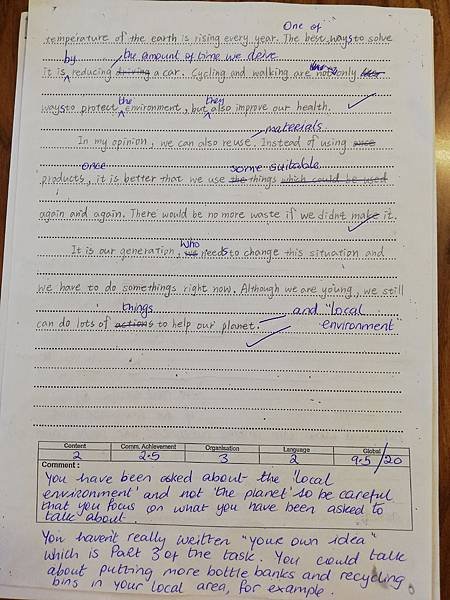 One of
temperature of the earth is rising every year. The best ways to solve
by the amount of time we drive
it is reducing driving a car. Cycling and walking are not only
the they
ways to protect environment, but also improve our health.
materials
In my opinion, we can also reuse. Instead of using once
once some suitable
products, it is better that we use the things which could be used
again and again. There would be no more waste if we didnt make it.
who
It is our generation, we needs to change this situation and
we have to do somethings right now. Although we are young, we still
things and "local
can do lots of actions to help our planet. environment"
Content Comm. Achievement Organisation Language Global
2 2.5 3 2 9.5/20
Comment:
You have been asked about the 'local
environment' and not 'the planet' so be careful
that you focus on what you have been asked to
talk about.
You haven't really written "your own idea"
which is Part 3 of the task. You could talk
about putting more bottle banks and recycling
bins in your local area, for example.